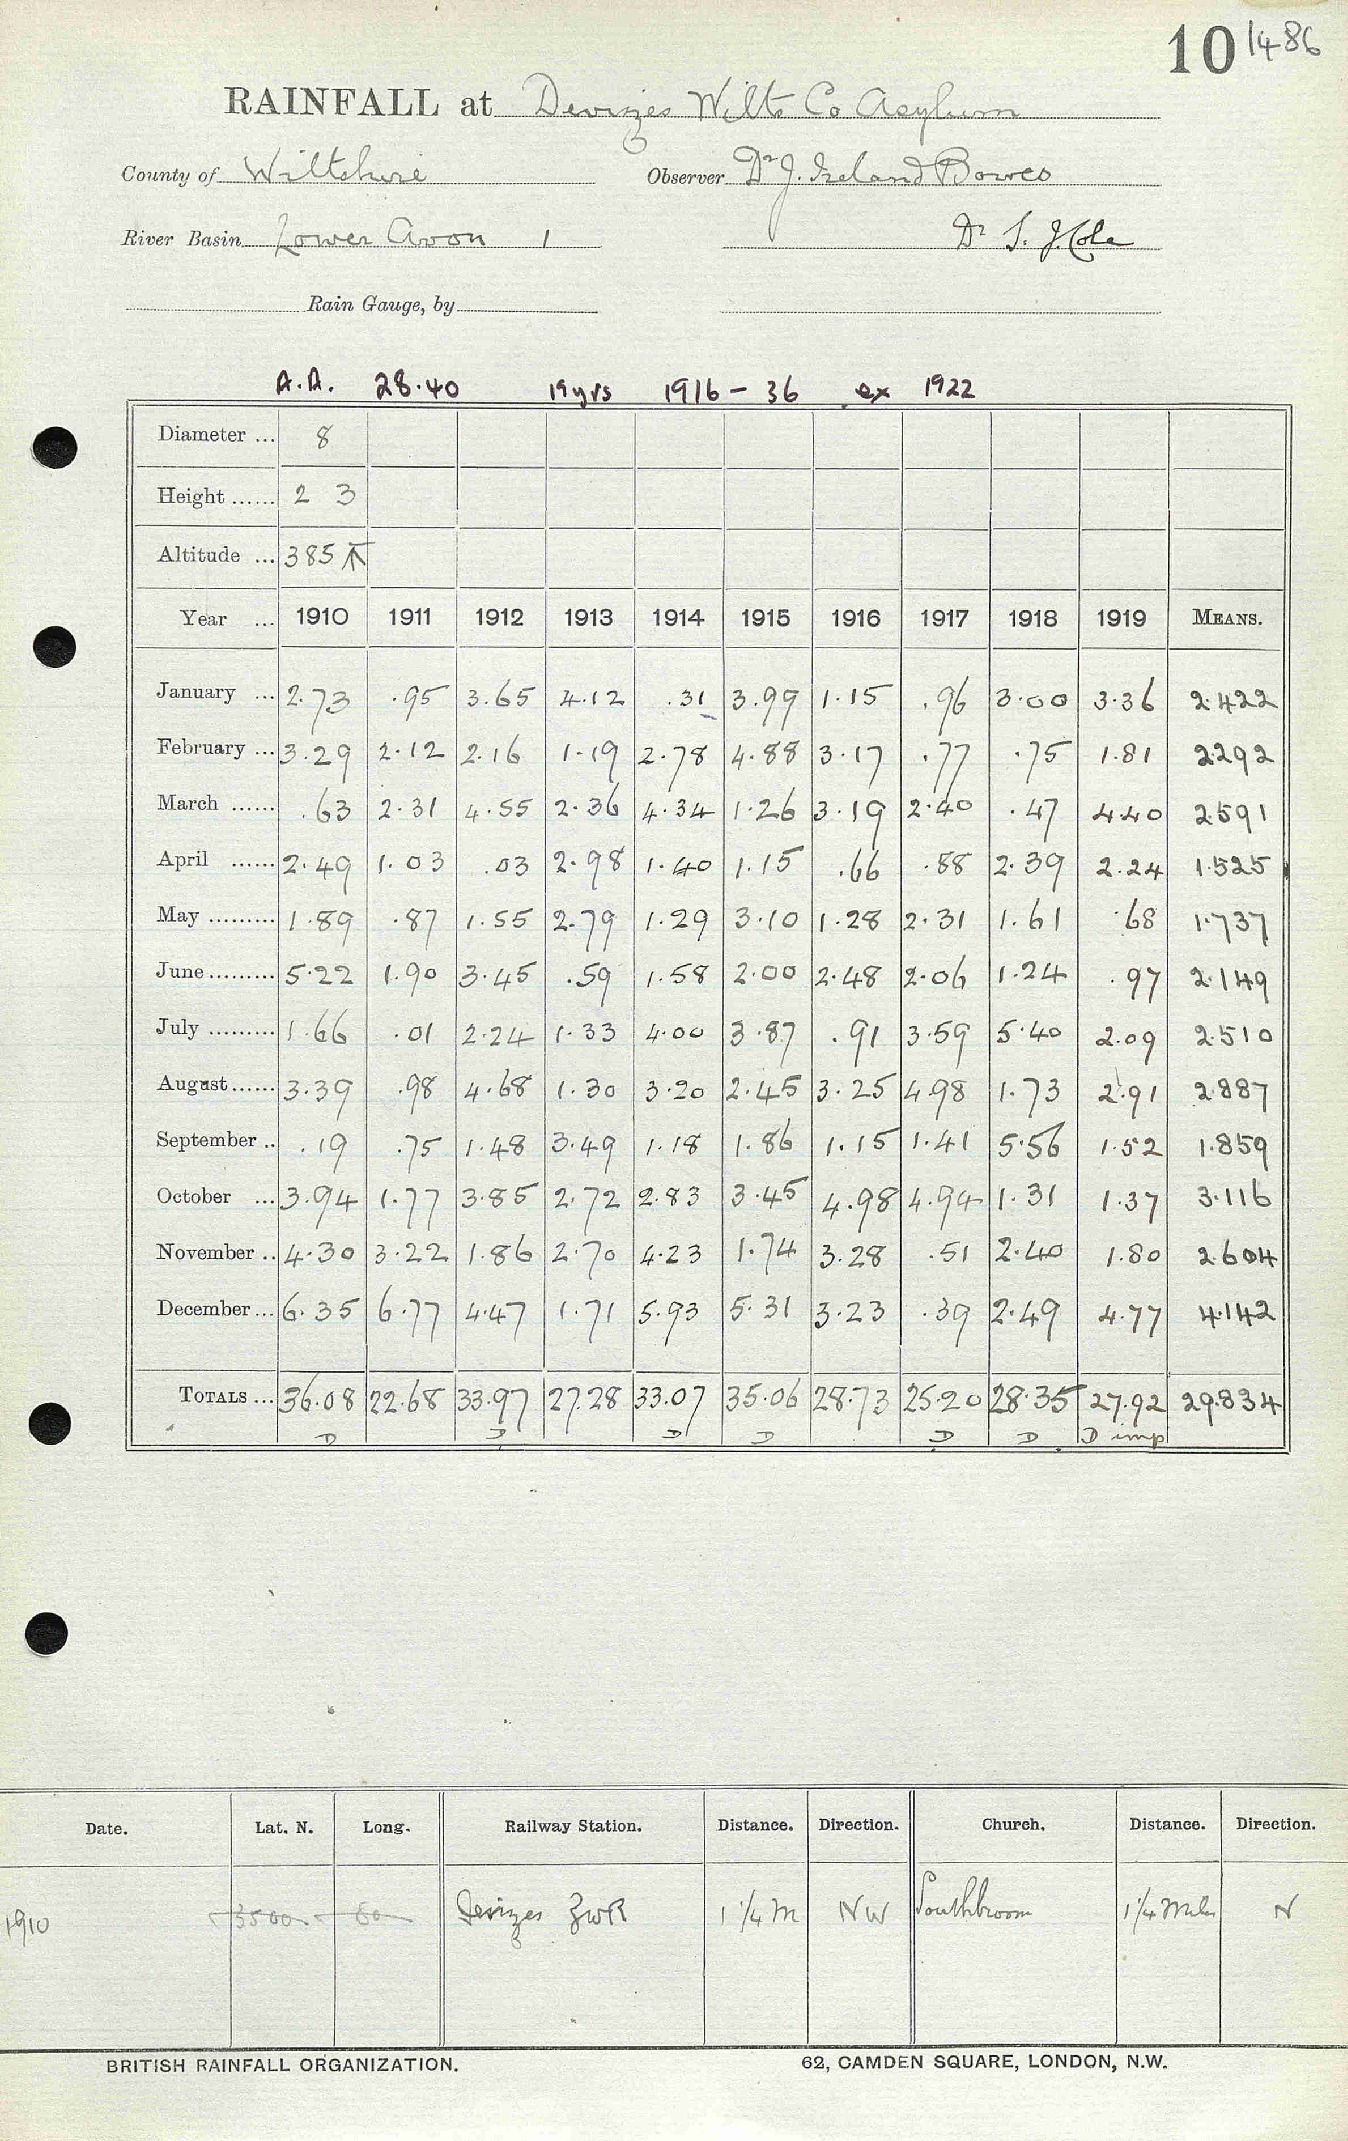 10 1486
RAINFALL at Devizes Wilts Co Asylum
County of Wiltshire Observer Dr J. Ireland Bowes
River Basin Lower Avon 1 Dr S. J. Cole
Rain Gauge, by
A.A. 28.40 19 yrs 1916 - 36 ex 1922
Diameter ... 8
Height ...... 2 3
Altitude ... 385
Year ... 1910 1911 1912 1913 1914 1915 1916 1917 1918 1919 MEANS.
January ... 2.73 .95 3.65 4.12 .31 3.99 1.15 .96 3.00 3.36 2.422
February ... 3.29 2.12 2.16 1.19 2.78 4.88 3.17 .77 .75 1.81 2292
March ...... .63 2.31 4.55 2.36 4.34 1.26 3.19 2.40 .47 4.40 2.591
April ...... 2.49 1.03 .03 2.98 1.40 1.15 .66 .88 2.39 2.24 1.525
May ......... 1.89 .87 1.55 2.79 1.29 3.10 1.28 2.31 1.61 .68 1.737
June ......... 5.22 1.90 3.45 .59 1.58 2.00 2.48 2.06 1.24 .97 2.149
July ......... 1.66 .01 2.24 1.33 4.00 3.87 .91 3.59 5.40 2.09 2.510
August ...... 3.39 .98 4.68 1.30 3.20 2.45 3.25 4.98 1.73 2.91 2.887
September .. .19 .75 1.48 3.49 1.18 1.86 1.15 1.41 5.56 1.52 1.859
October ... 3.94 1.77 3.85 2.72 2.83 3.45 4.98 4.94 1.31 1.37 3.116
November .. 4.30 3.22 1.86 2.70 4.23 1.74 3.28 .51 2.40 1.80 2.604
December ... 6.35 6.77 4.47 1.71 5.93 5.31 3.23 .39 2.49 4.77 4.142
TOTALS ... 36.08 22.68 33.97 27.28 33.07 35.06 28.73 25.20 28.35 27.92 29.834
D D D D D D D imp
Date. Lat. N. Long. Railway Station. Distance. Direction. Church. Distance. Direction.
1910 3500 60 Devizes GWR 1 1/4 M NW Southbroom 1 1/4 Miles N
BRITISH RAINFALL ORGANIZATION. 62, CAMDEN SQUARE, LONDON, N.W.